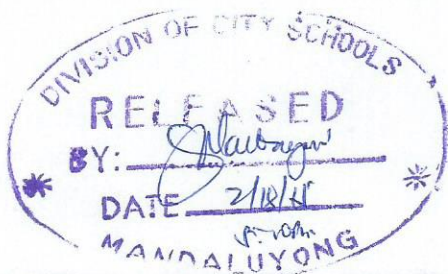 DIVISION OF CITY SCHOOLS
RELEASED
BY:
DATE 2/18/
MANDALUYONG